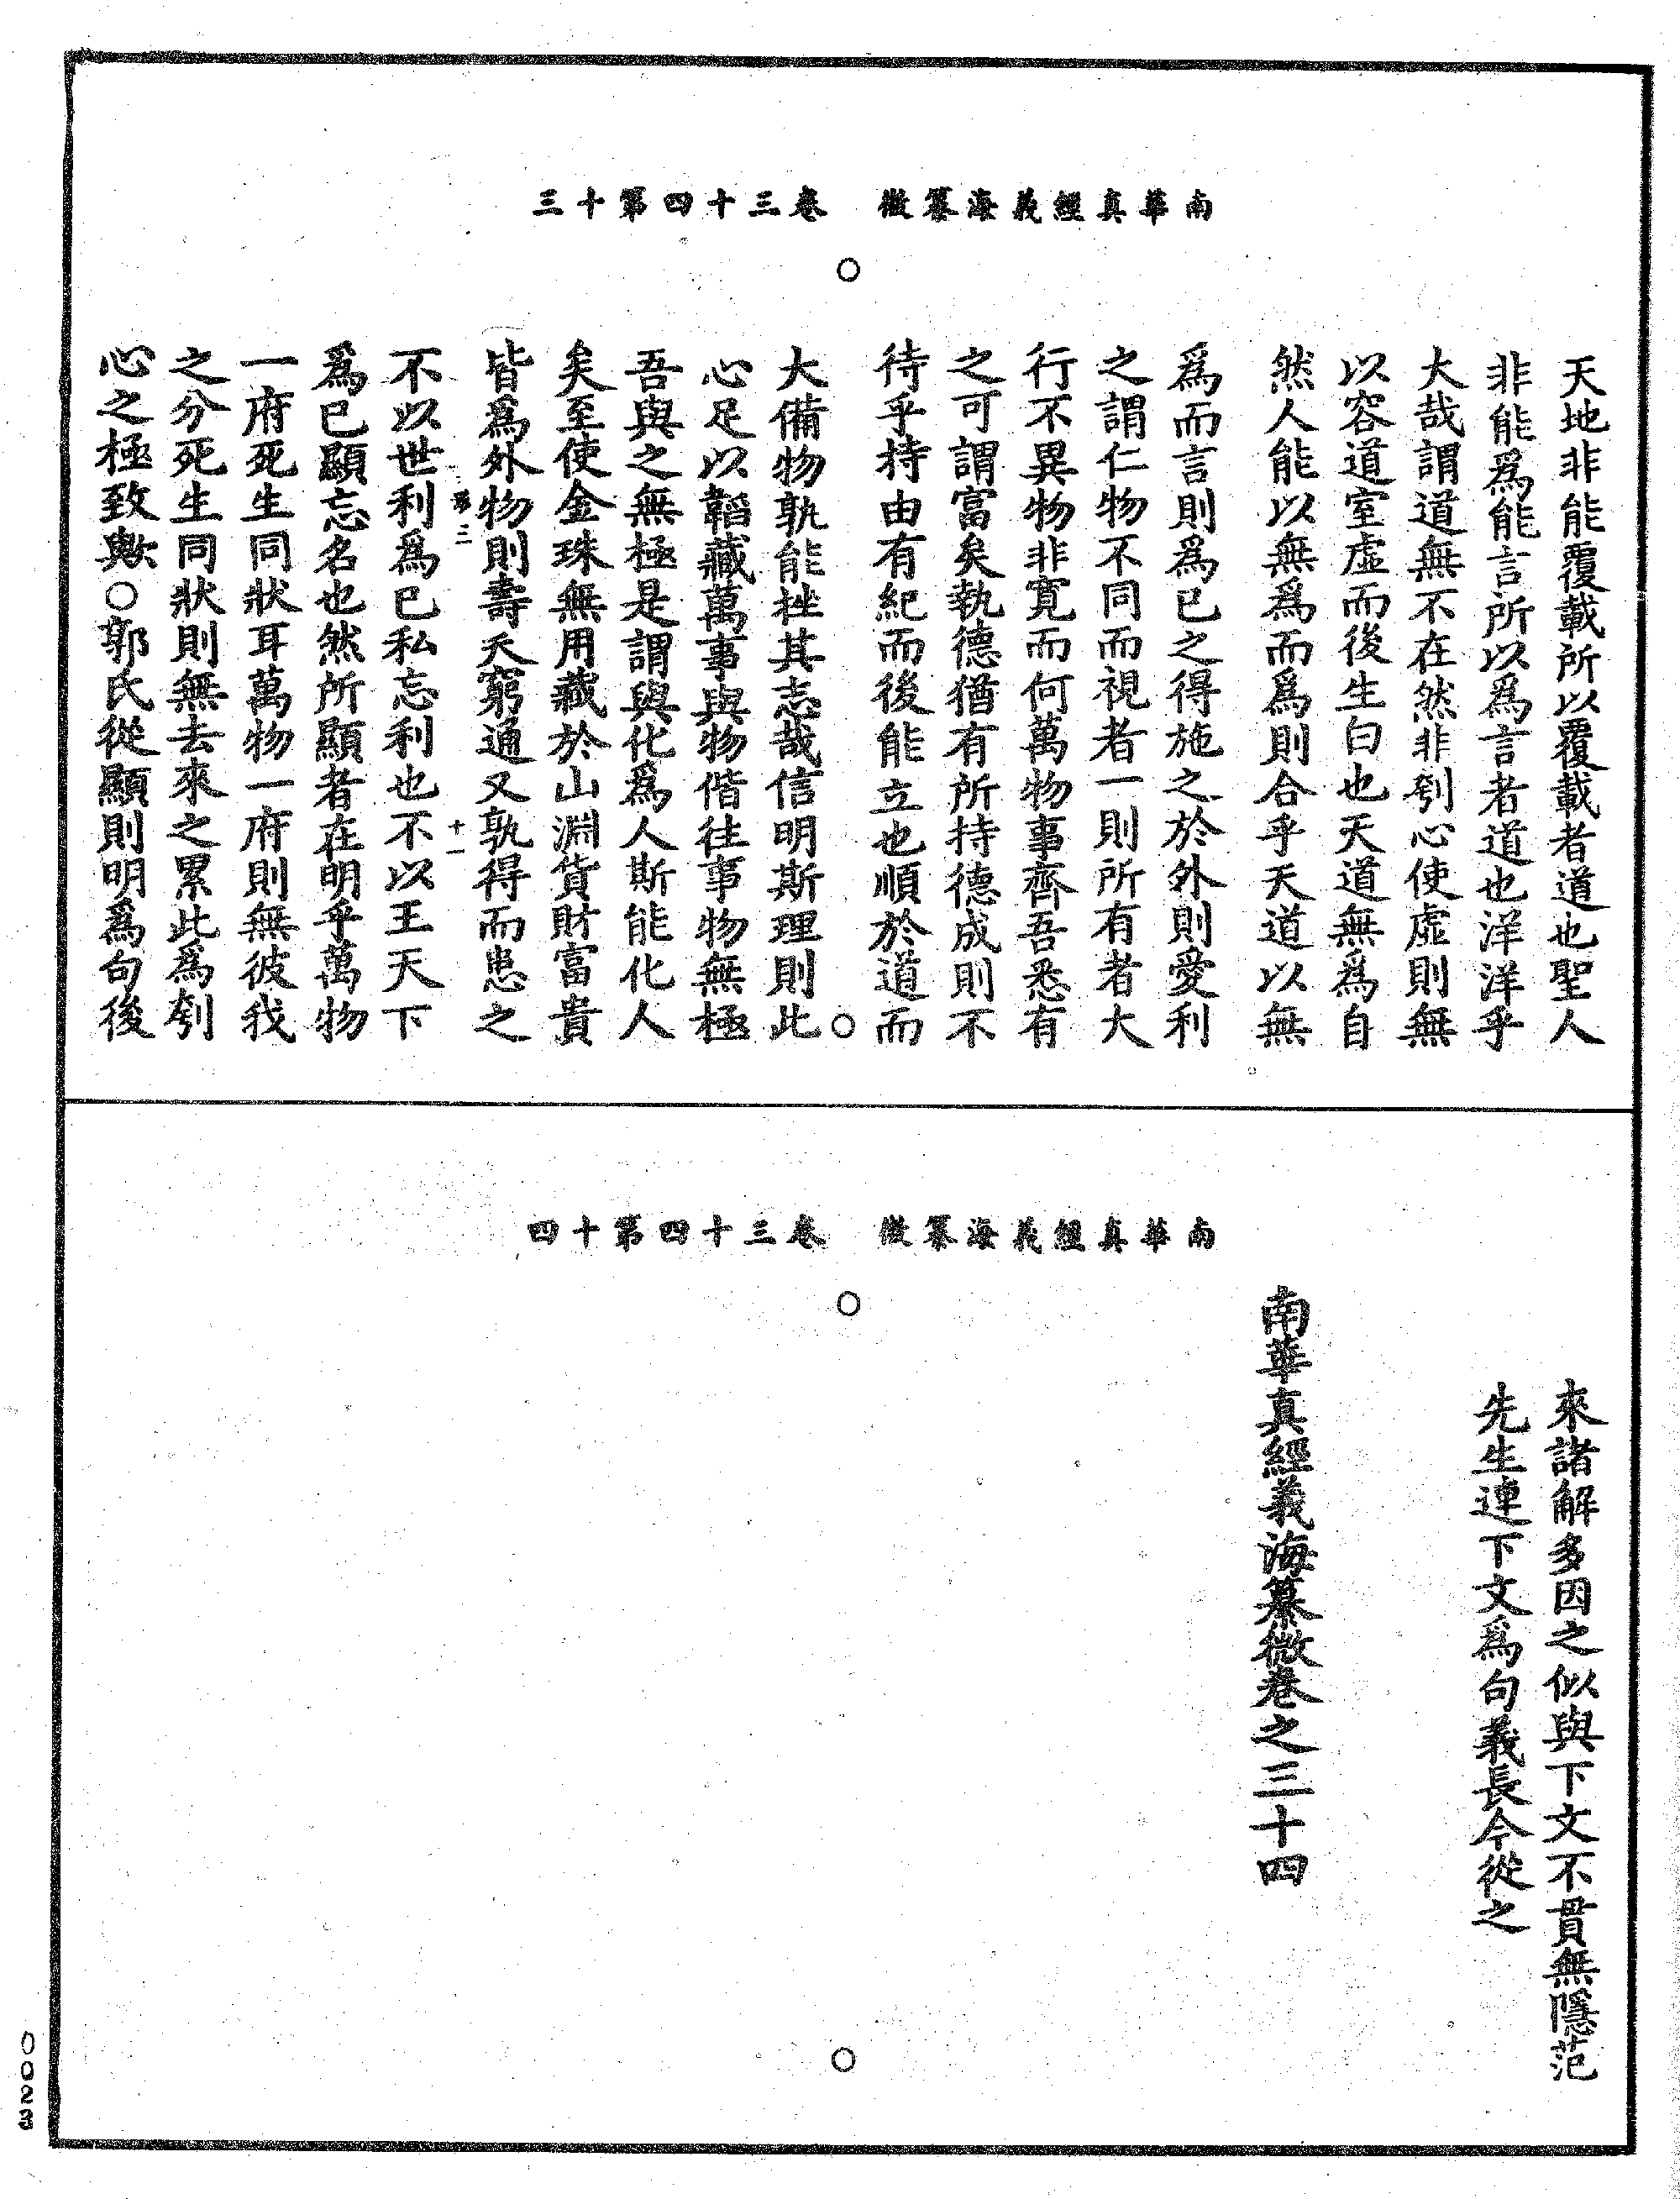 南華真經義海纂微　卷三十四第十三
天地非能覆載所以覆載者道也聖人
非能爲能言所以爲言者道也洋洋乎
大哉謂道無不在然非刳心使虛則無
以容道室虛而後生白也天道無爲自
然人能以無爲而爲則合乎天道以無
爲而言則爲已之得施之於外則愛利
之謂仁物不同而視者一則所有者大
行不異物非寬而何萬物事齊吾悉有
之可謂富矣執德猶有所持德成則不
待乎持由有紀而後能立也順於道而
大備物孰能挫其志哉信明斯理則此
心足以韜藏萬事與物偕往事物無極
吾與之無極是謂與化爲人斯能化人
矣至使金珠無用藏於山淵貨財富貴
皆爲外物則壽夭窮通又孰得而患之
十一
不以世利爲已私忘利也不以王天下
爲已顯忘名也然所顯者在明乎萬物
一府死生同狀耳萬物一府則無彼我
之分死生同狀則無去來之累此爲刳
心之極致歟○郭氏從顯則明爲句後
南華真經義海纂微　卷三十四第十四
來諸解多因之似與下文不貫無隱范
先生連下文爲句義長今從之
南華真經義海纂微卷之三十四
0023